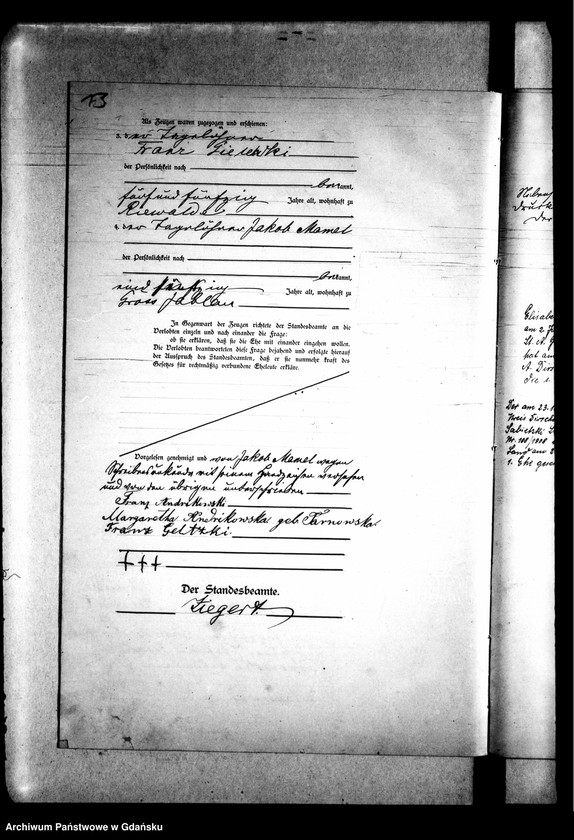 B
Als Zeugen waren zugezogen und erschienen:
3. der Tagelöhner
Franz Gielewski
der Persönlichkeit nach
bekannt,
fünfundfünfzig Jahre alt, wohnhaft zu
Riewalde
4. der Tagelöhner Jakob Mamel
der Persönlichkeit nach
bekannt,
einundfünfzig Jahre alt, wohnhaft zu
Gross Jablau
In Gegenwart der Zeugen richtete der Standesbeamte an die
Verlobten einzeln und nach einander die Frage:
ob sie erklären, daß sie die Ehe mit einander eingehen wollen.
Die Verlobten beantworteten diese Frage bejahend und erfolgte hierauf
der Ausspruch des Standesbeamten, daß er sie nunmehr kraft des
Gesetzes für rechtmäßig verbundene Eheleute erkläre.
Vorgelesen, genehmigt und von Jakob Mamel wegen
Schreibensunkunde mit seinem Handzeichen versehen
und von den übrigen unterschrieben
Franz Andrikowski
Margaretha Andrikowska geb Tarnowska
Franz Geletzki.
+++
Der Standesbeamte.
Ziegert
Elisabe
am 2
St. A.
hat am
A. Dirs
Der am 23.1
Kreis Dirscha
Nr. 108/1908
1. Ehe gesch
Archiwum Państwowe w Gdańsku